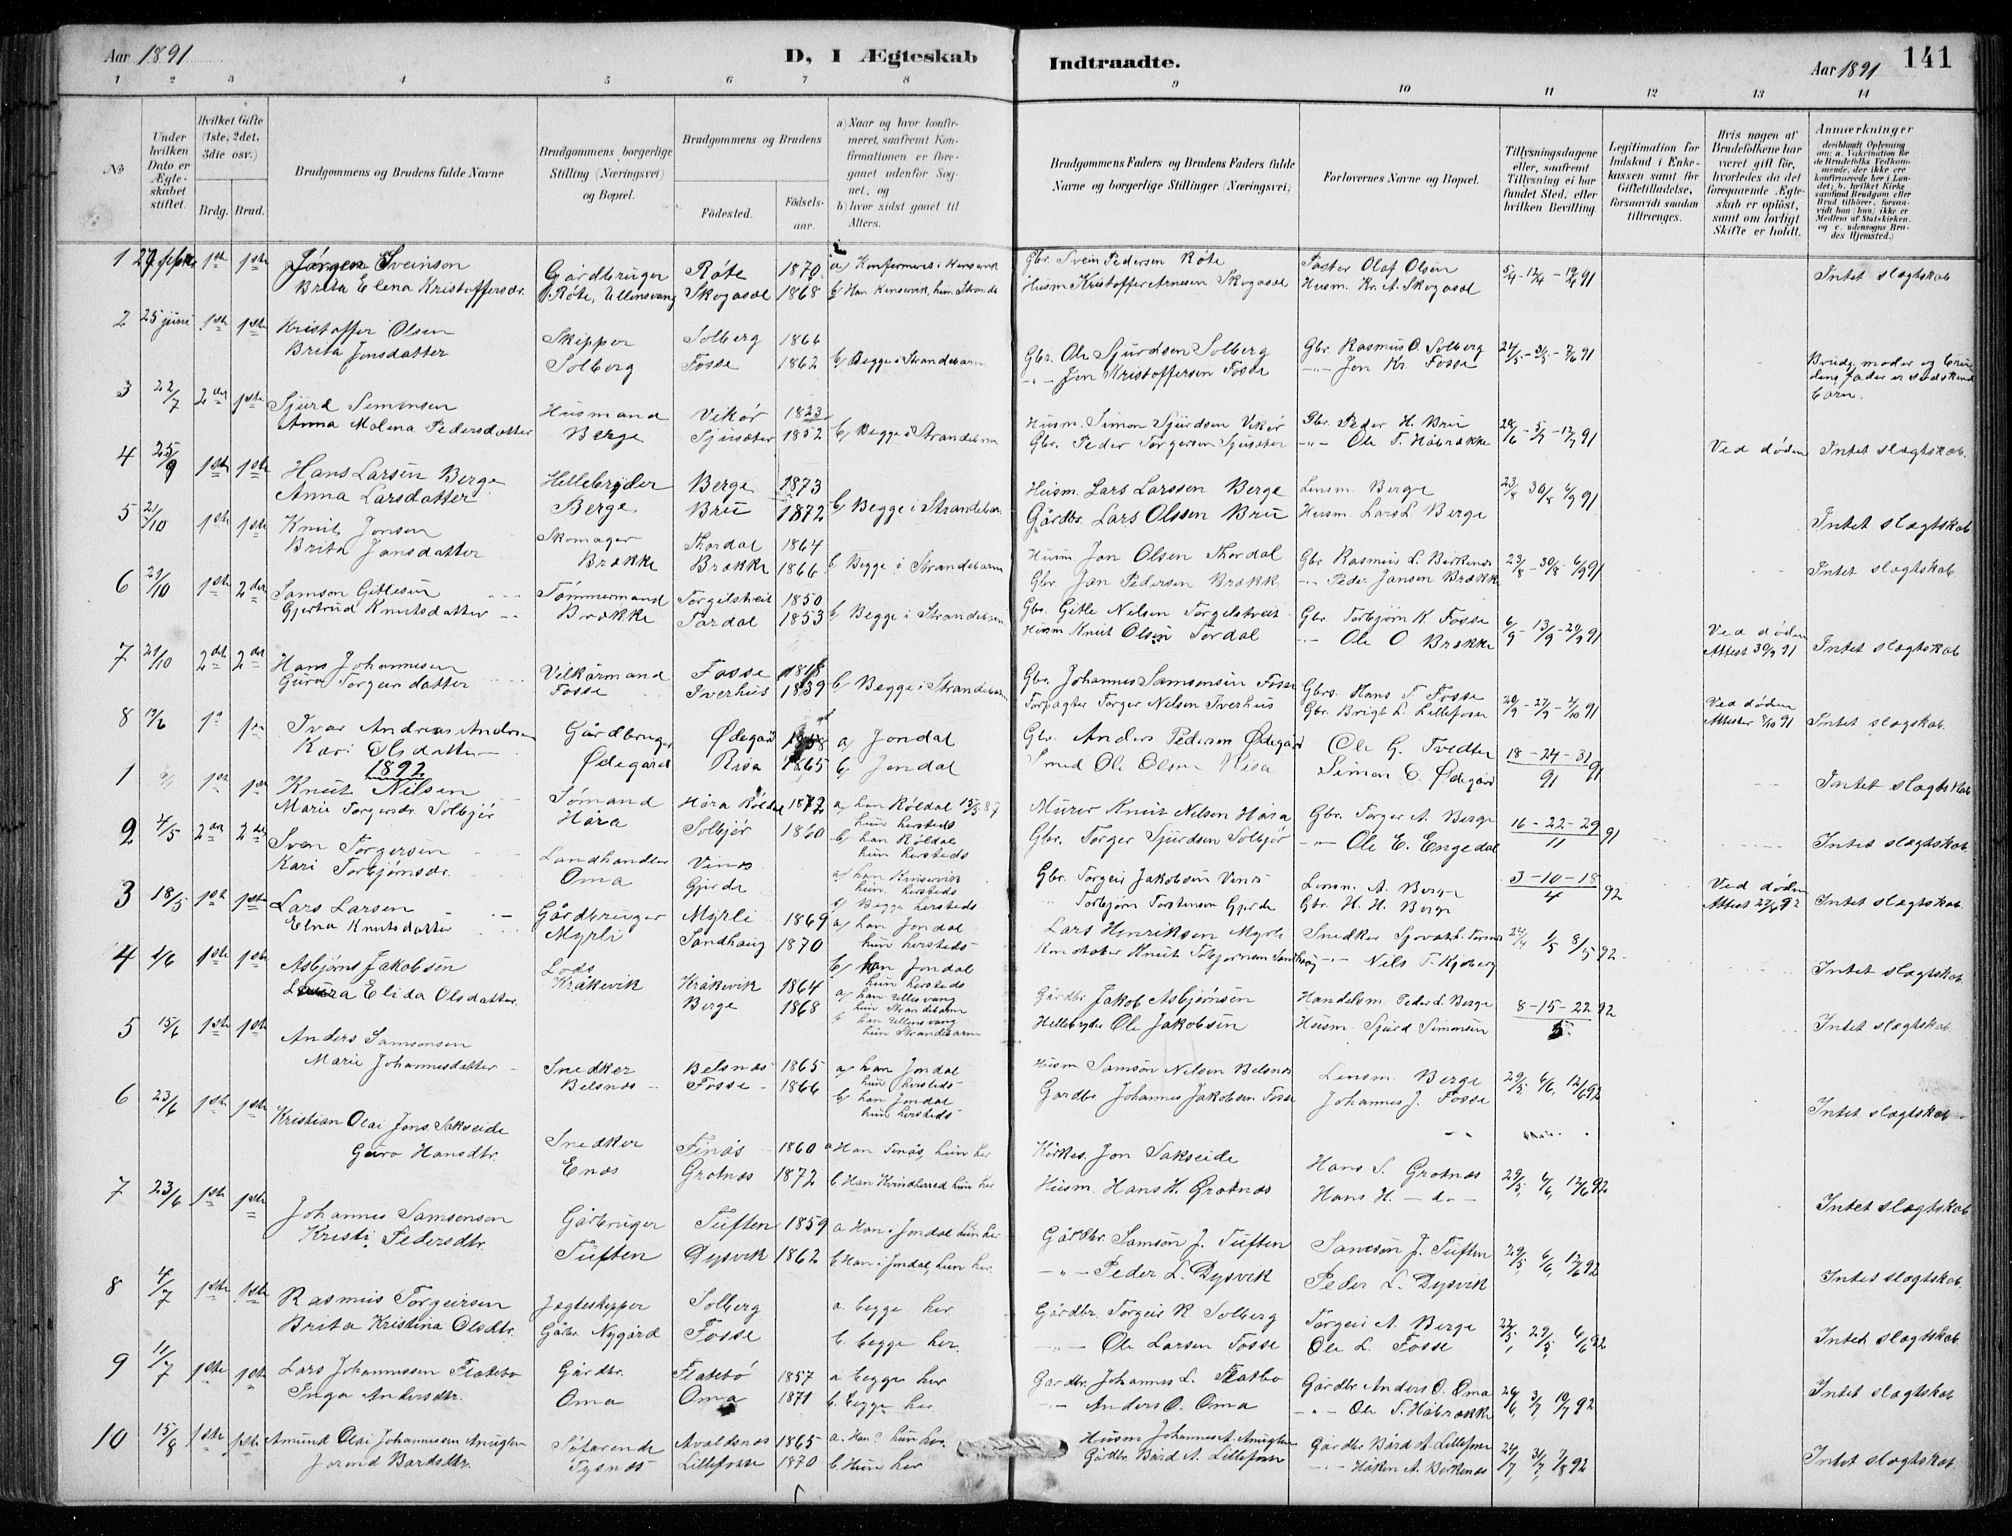 Aar 1891
D, I Ægteskab Indtraadte.
Aar 1891
141
1 2 3 4 5 6 7 8 9 10 11 12 13 14
No
Under hvilken Dato er Ægteskabet stiftet.
Hvilket Gifte (1ste, 2det, 3die osv.)
Brdg. Brud.
Brudgommens og Brudens fulde Navne
Brudgommens borgerlige Stilling (Næringsvei) og Bopæl.
Brudgommens og Brudens
Födested. Födselsaar.
a) Naar og hvor konfirmeret, saafremt Konfirmationen er foregaaet udenfor Sognet, og
b) hvor sidst gaaet til Alters.
Brudgommens Faders og Brudens Faders fulde Navne og borgerlige Stillinger (Næringsvei)
Forlovernes Navne og Bopæl.
Tillysningsdagene eller, saafremt Tillysning ei har fundet Sted, efter hvilken Bevilling.
Legitimation for Indskud i Enkekassen samt for Giftetilladelse, forsaavidt saadan tiltrænges.
Hvis nogen af Brudefolkene har været gift før, hvorledes da det foregaaende Ægteskab er opløst, samt om lovligt Skifte er holdt.
Anmærkninger
deriblandt Oplysning om: a. Vakcination for de Brudefolks Vedkommende, der ikke ere konfirmerede her i Landet; b. hvilket Kirkesamfund Brudgom eller Brud tilhører, forsaavidt han (hun) ikke er Medlem af Statskirken, og c. udensogns Brudes Hjemsted.)
1 1ste 1ste Jørgen Sveinson Gardbruger Røte 1870 a) Konfirmert i Kinservik Gbr Svein Pedersen Røte Foster Olaf Olsen 5/4 - 12/4 - 19/4 91 Intet slægtskab
Brita Elena Kristoffersdr. Røte, Ullensvang Skogasæl 1868 b) Han Kinservik, hun Strandb Husm Kristoffer Arnesen Skogasæl Husm. Kr. A. Skogasæl
2 25 juni 1ste 1ste Kristoffer Olsen Skipper Solberg 1866 Gbr. Ole Sjurdsen Solberg Gbr Rasmus O. Solberg 24/5 - 31/5 - 7/6 91 Brudg. moder og brudens fader er sødskendebørn.
Brita Jonsdatter Solberg Fosse 1862 b) Begge i Strandebarn -"- Jon Kristoffersen Fosse -"- Jon Kr Fosse
3 22/7 2det 1ste Sjurd Simonsen Husmand Vikør 1823 Husm. Simon Sjurdsen Vikør Gbr Peder H. Bru 28/6 - 5/7 - 12/7 91 Ved døden Intet slægtskab.
Anna Malena Pedersdatter Berge Sjusæter 1852 b) Begge i Strandebarn Gbr. Peder Torgersen Sjusæter -"- Ole T. Håbrække
4 25/9 1ste 1ste Hans Larsen Berge Hellebryder Berge 1873 Husm. Lars Larssen Berge Lensm. Berge 23/8 30/8 6/9 91 Intet slægtskab
Anna Larsdatter Berge Bru 1872 b) Begge i Strandebarn Gårdbr. Lars Olssen Bru Husm. Lars L Berge
5 21/10 1ste 1ste Knut Jonsen Skomager Thordal 1864 Husm Jon Olsen Thordal Gbr Rasmus L. Birkenes 23/8 - 30/8 - 6/9 91 Intet slægtskab
Brita Jansdatter Brække Brække 1866 b Begge i Strandebarn Gbr. Jan Pedersen Brække -"- Peder Jansen Brække
6 21/10 1ste 2det Samson Gitlesen Tømmermand Torgilstveit 1850 Gbr. Gitle Nilsen Torgilstveit Gbr. Torbjørn K. Fosse 6/9 - 13/9 - 20/9 91 Ved døden Attest 30/9 91 Intet slægtskab
Gjertrud Knutsdatter Brække Tordal 1853 b) Begge i Strandebarn Husm Knut Olsen Tordal -"- Ole O. Brække
7 21/10 2det 2det Hans Johannesen Vilkårmand Fosse 1818 Gbr. Johannes Samsonsen Fosse Gbr. Hans T. Fosse 20/9 - 27/9 - 4/10 91 Ved døden Attester 8/10 91 Intet slægtskab.
Guro Torgersdatter Fosse Tverhus 1839 b) Begge i Strandebarn Forpagter Torger Nilsen Tverhus Gbr. Brigt L. Lillefosse
8 Ivar Andreas Andersen Gårdbruger Ødegård 1858 a) Jondal Gbr. Anders Pedersen Ødegård Ole G. Tvedten 18-24-31 91 Intet slægtskab
Kari Olsdatter Ødegård Risa 1865 b) Jondal Smed Ole Olsen Risa Simon O. Ødegård
1892
1 1ste 1ste Knut Nilsen Sømand Håra Røldal 1872 a) han Røldal hun hersteds Murer Knut Nilsen Håra Gbr. Torger A. Berge 16-22-29 11 91 Intet slægtskab.
Marie Torgersdr. Solbjør Håra Solbjør 1860 b) han Røldal hun hersteds Gbr. Torger Sjurdsen Solbjør -"- Ole E. Engedal
2 4/5 2det 2det Sven Torgersen Landhandler Vines a) han Kinservik hun hersteds Gbr. Torgeir Jakobsen Vines Lensm. A. Berge 3-10-18 4 92 Ved døden Intet slægtskab.
Kari Torbjørnsdr. Oma Gjerde b) Begge hersteds " Torbjørn Torstensen Gjerde Gbr. H. H. Berge
3 18/5 1ste 1ste Lars Larsen Gårdbruger Myrli 1869 a) han Jondal hun hersteds Lars Henriksen Myrli Snedker 24/4 1/5 8/5 92 Intet slægtskab.
Elna Knutsdatter Myrli Sandhaug 1870 b) han Jondal hun hersteds Knut Torbjørnsen Sandhaug -"- Nils T.
4 1/6 1ste 1ste Asbjørn Jakobsen Lods Kråkevik 1864 a) han Ullensvang hun Strandebarn Gårdbr Jakob Asbjørnsen Handelsm. Peder L. Berge 8-15-22 5. 92 Intet slægtskab
Laura Elida Olsdatter Kråkevik Berge 1868 b) han Ullensvang hun Strandebarn Hellebryder Ole Jakobsen Husm. Sjurd Simonsen
5 15/6 1ste 1ste Anders Samsonsen Snedker Belsnes 1865 a) han Jondal hun hersteds Husm Samson Nilsen Belsnes Lensm. Berge 29/5 6/6, 12/6 92 Intet slægtskab
Marie Johannesdatter Belsnes Fosse 1866 b) han Jondal hun hersteds Gardbr Johannes Jakobsen Fosse Johannes J. Fosse
6 23/6 1ste 1ste Kristian Olai Jons. Sakseide Snedker Finås 1860 a Han Finås, hun her Kirkes. Jon Sakseide Hans S. Grotnes 29/5, 6/6, 12/6 92 Intet slægtskab
Guro Hansdtr. Enæs Grotnæs 1872 b Han Kvindherred hun her Husm. Hans H. Grotnæs Hans H. -d.-
7 23/6 1ste 1ste Johannes Samsonson Gårbruger Tuften 1859 a Han i Jondal hun her Gårdbr. Samson J. Tuften Samson J. Tuften 29/5, 6/6, 12/6 92 Intet slægtskab.
Kristi Pedersdtr. Tuften Dysvik 1862 b Han i Jondal, hun her. -"- Peder L. Dysvik Peder L. Dysvik
8 4/7 1ste 1ste Rasmus Torgeirsen Jægteskipper Solberg a. begge her Gårdbr Torgeir R Solberg Torgeir A. Berge 22/5, 29/5, 6/6 92 Intet slægtskab.
Brita Kristina Olsdtr. Gårbr. Nygård Fosse b. begge her. -"- Ole Larsen Fosse Ole L. Fosse
9 11/7 1ste 1ste Lars Johannesen Flatebø Gårdbr. Flatebø 1857 a begge her Gardbr. Johannes L. Flatbø Gårdbr Anders O. Oma 26/6, 3/7 10/7 92 Intet slægtskab
Inga Andersdtr. Oma Oma 1871 b. begge her. -"- Anders O. Oma -"- Ole T. Håbrække
10 15/8 1ste 1ste Amund Olai Johannesen Anuglen Søfarende Avaldsnes 1865 a. Han? hun her. Husm Johannes A. Anuglen Gårdbr Bård A. Lillefosse 24/7, 31/7 7/8 92 Intet slægtskab.
Jorend Bardsdtr. Tysnes Lillefosse 1870 b. Hun her Gårdbr. Bård A. Lillefosse -"- Håken A. Birkenes